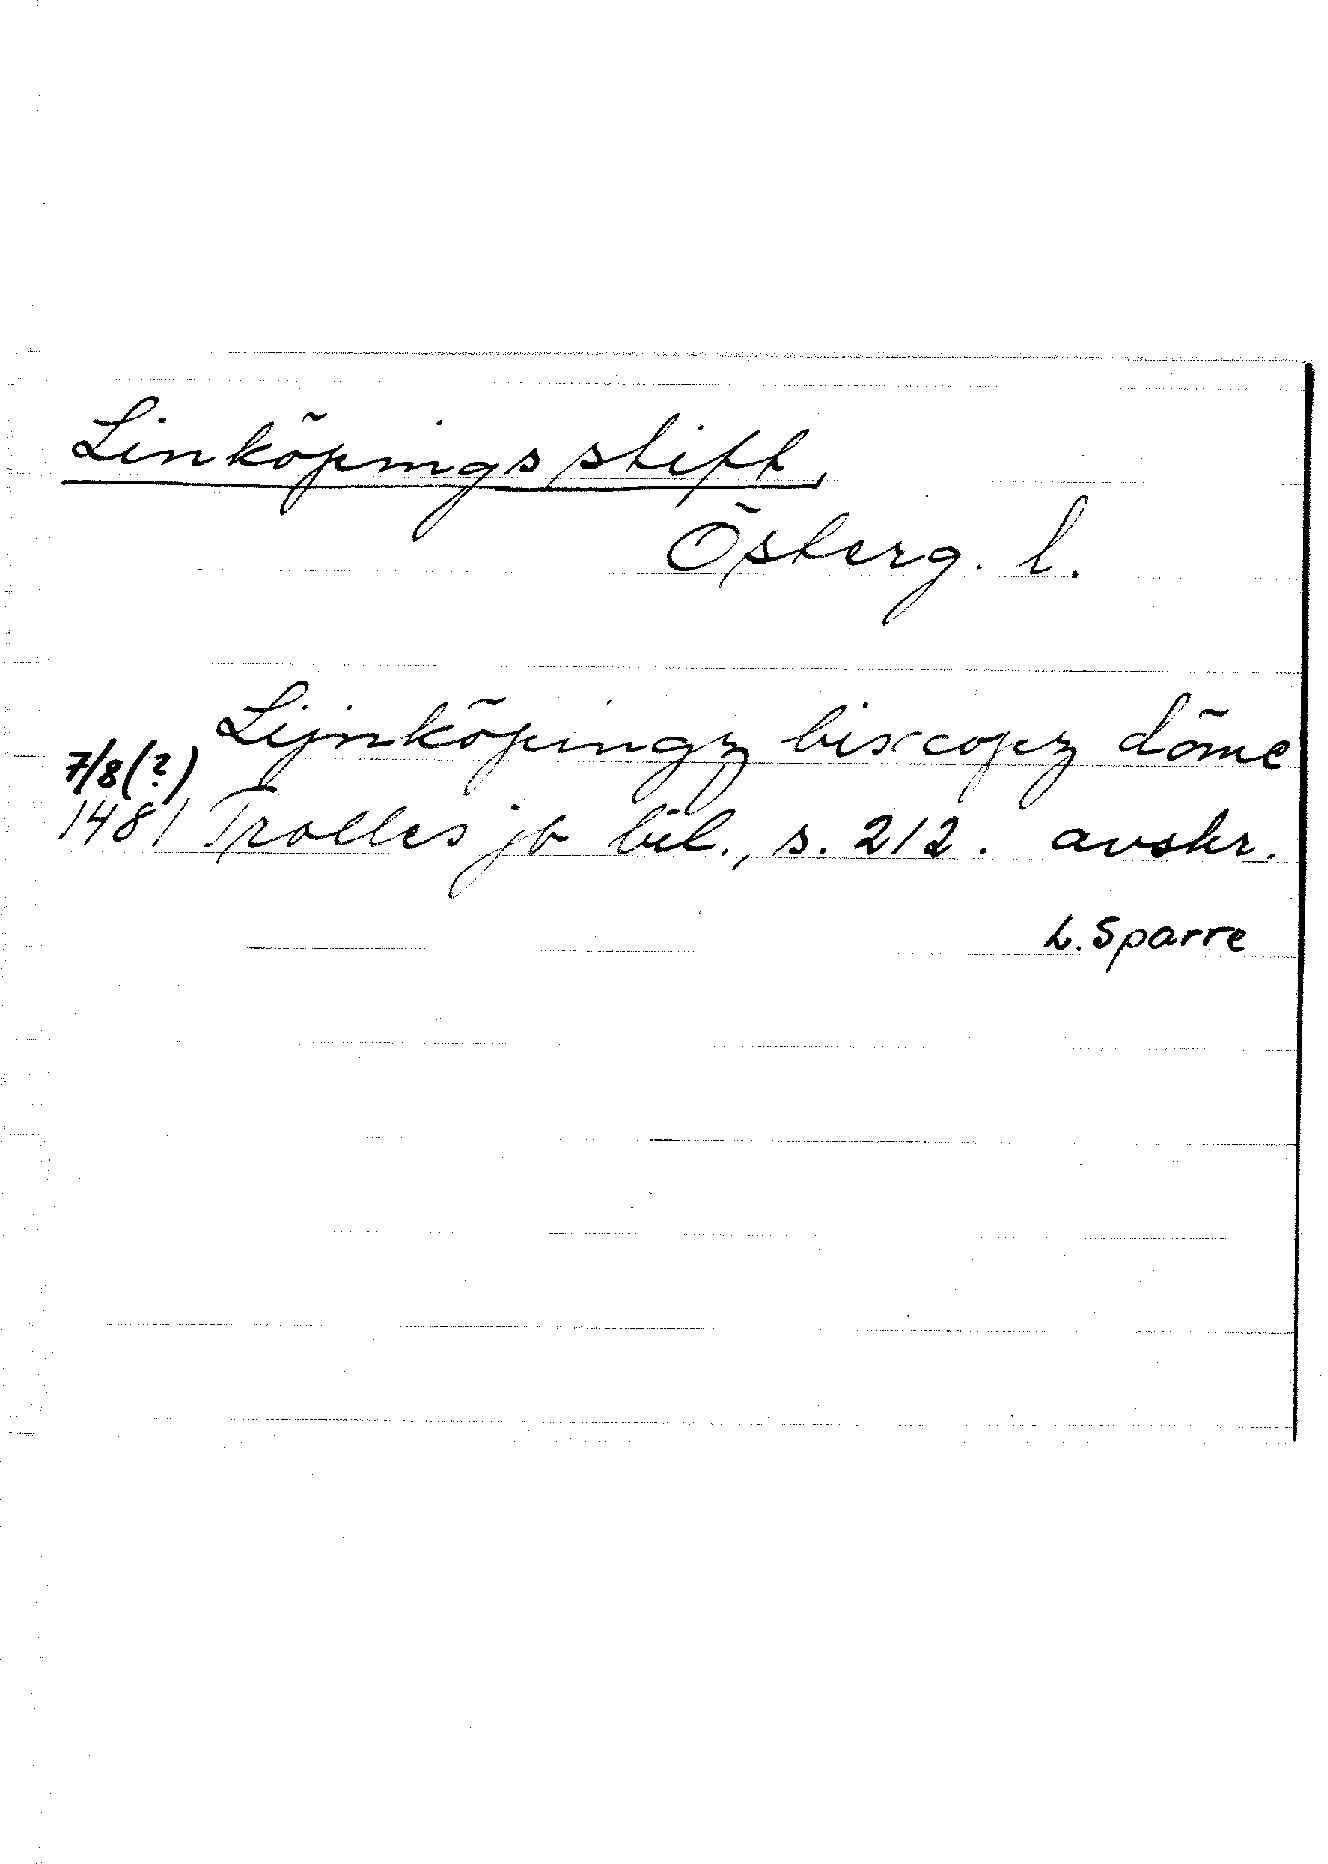 Linköpings stift,
Österg. l.
Lijnköpingz biscopz döme
7/8 (?)
1481 Trolles jb bil., s. 212. avskr.
L. Sparre